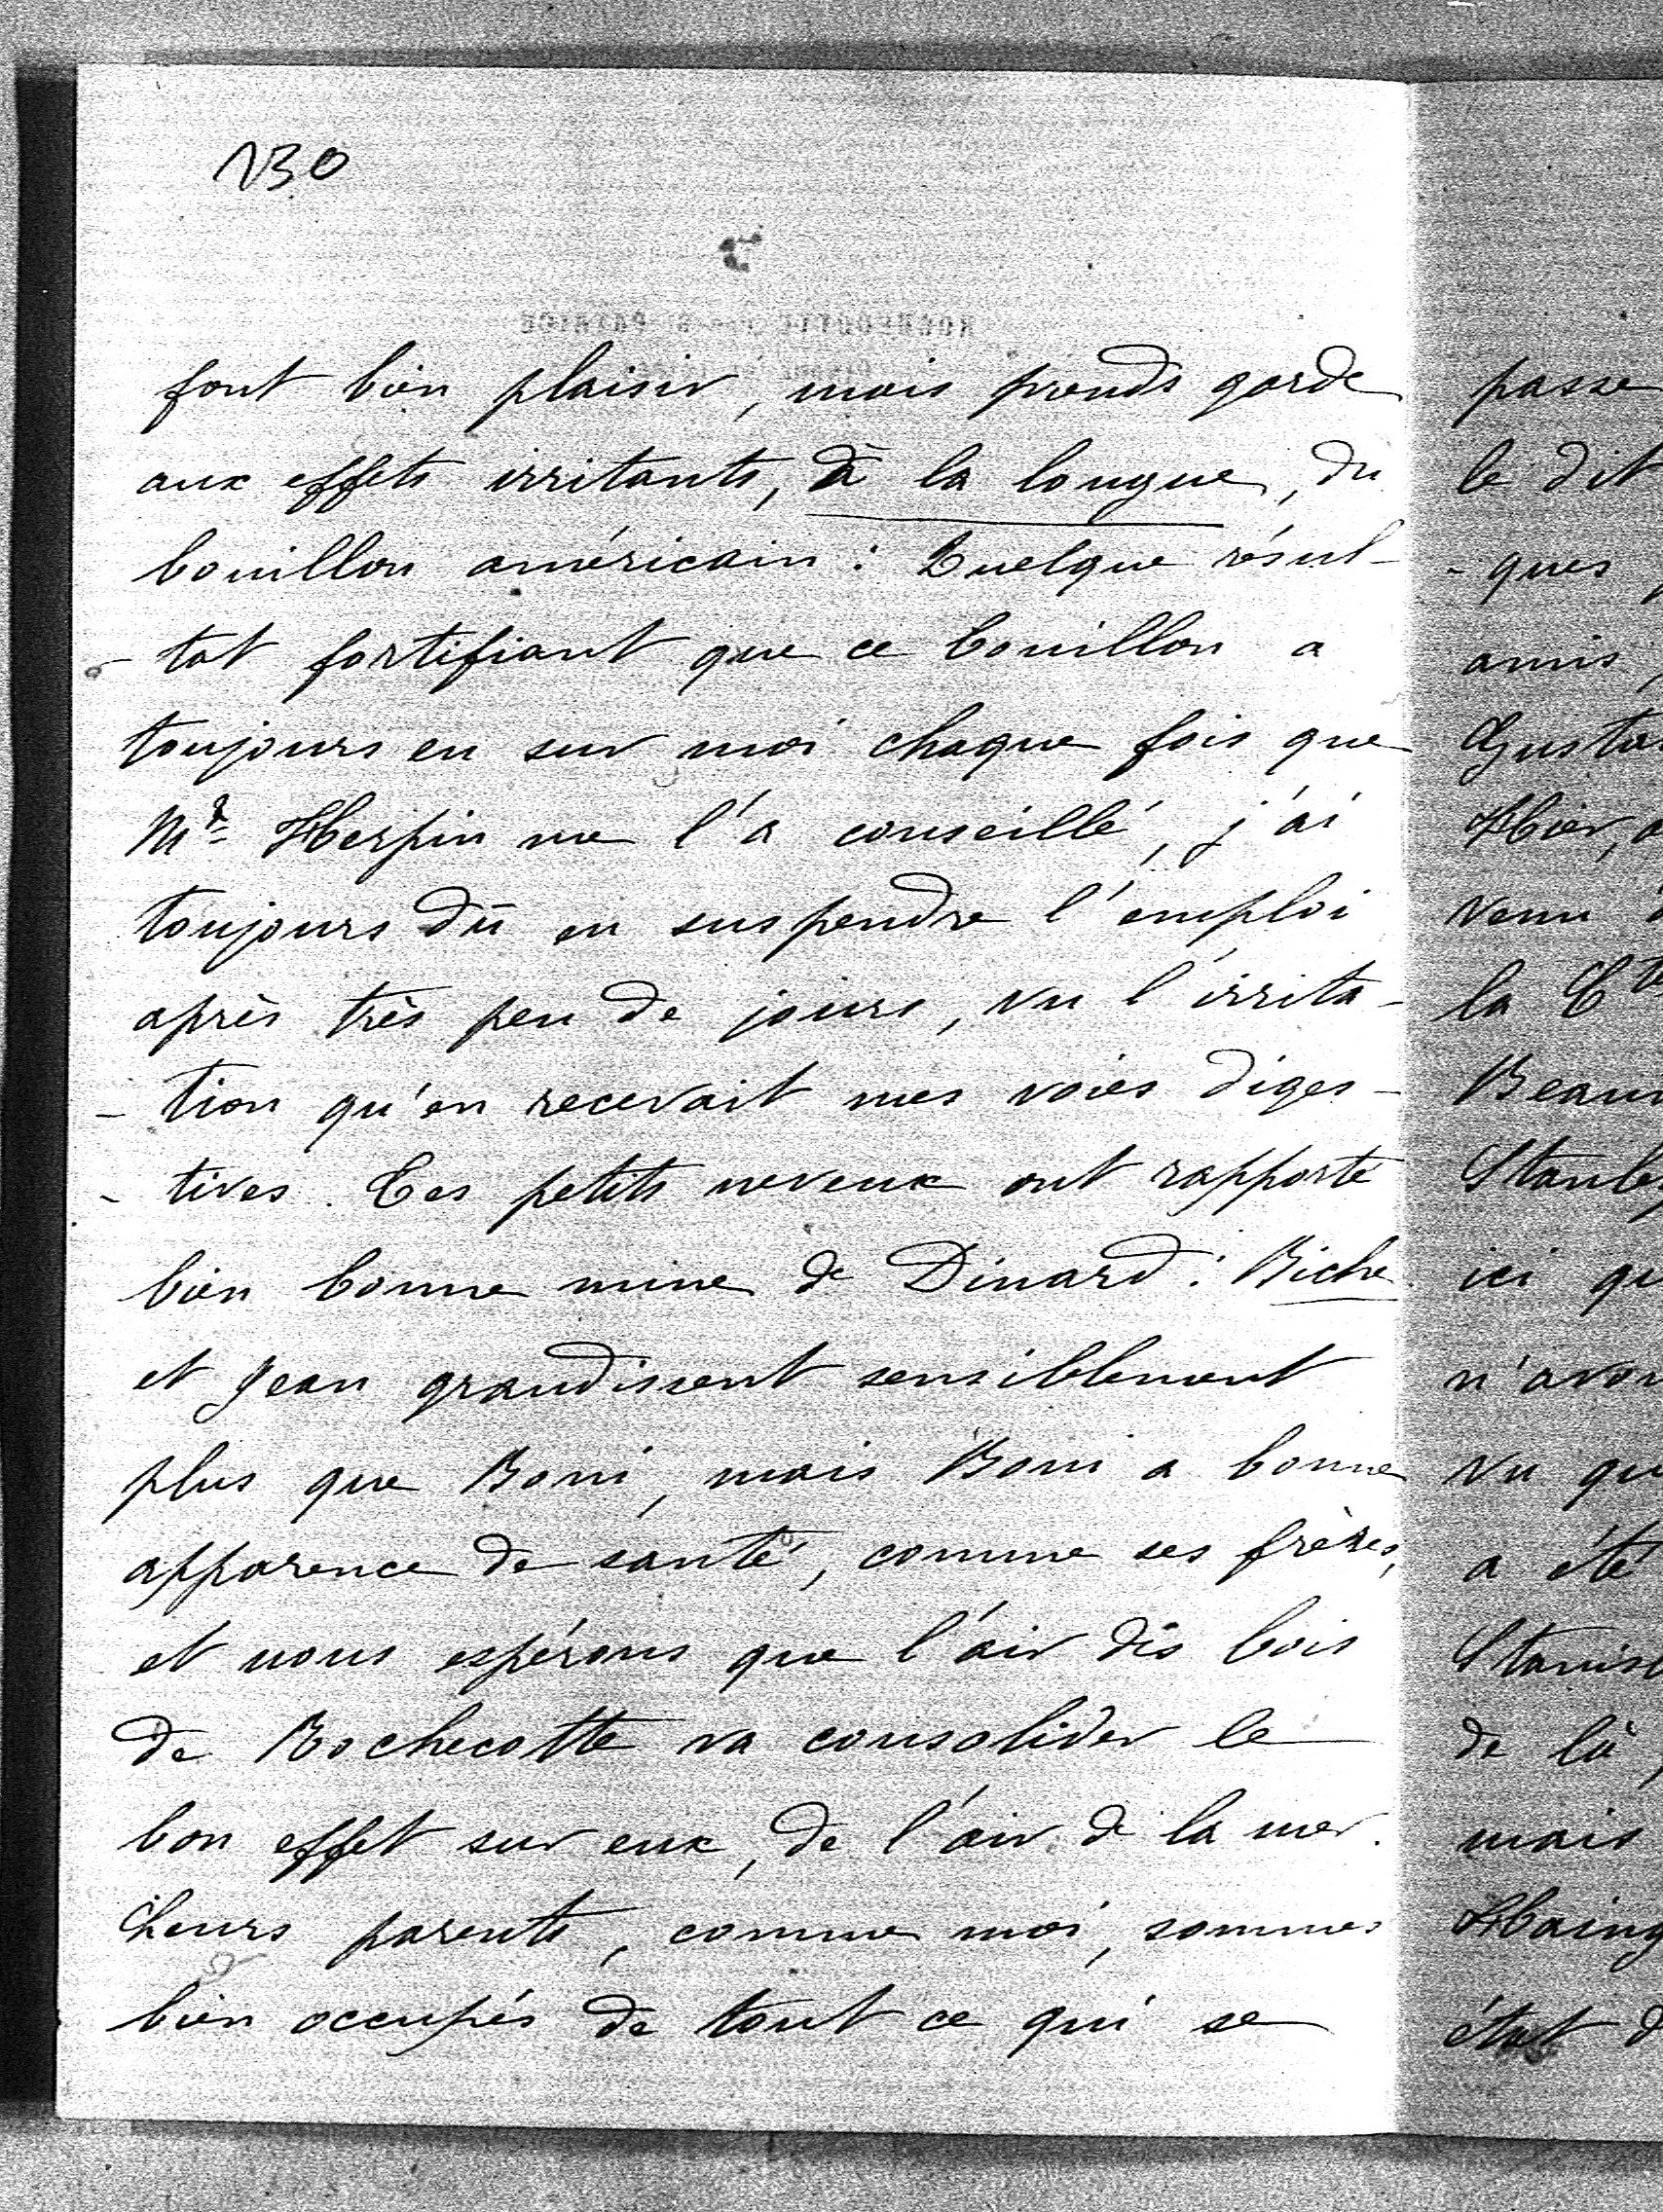 130
font bien plaisir, mais prends garde
aux effets irritants, à la longue, du
bouillon américain : Quelque résul-
-tat fortifiant que ce bouillon a
toujours eu sur moi chaque fois que
Mr Herpin me l'a conseillé, j'ai
toujours dû en suspendre l'emploi
après très peu de jours, vu l'irrita-
-tion qu'en recevait mes voies diges-
-tives. Ces petits neveux ont rapporté
bien bonne mine de Dinard : Biche
et Jean grandissent sensiblement
plus que Boni, mais Boni a bonne
apparence de santé, comme ses frères,
et nous espérons que l'air des bois
de Rochecotte va consolider le
bon effet sur eux, de l'air de la mer.
Leurs parents, comme moi, sommes
bien occupés de tout ce qui se
passe
le dit
-ques
amis,
Hier,
venu
la Cte
ici
vu
a été
de là,
mais
état